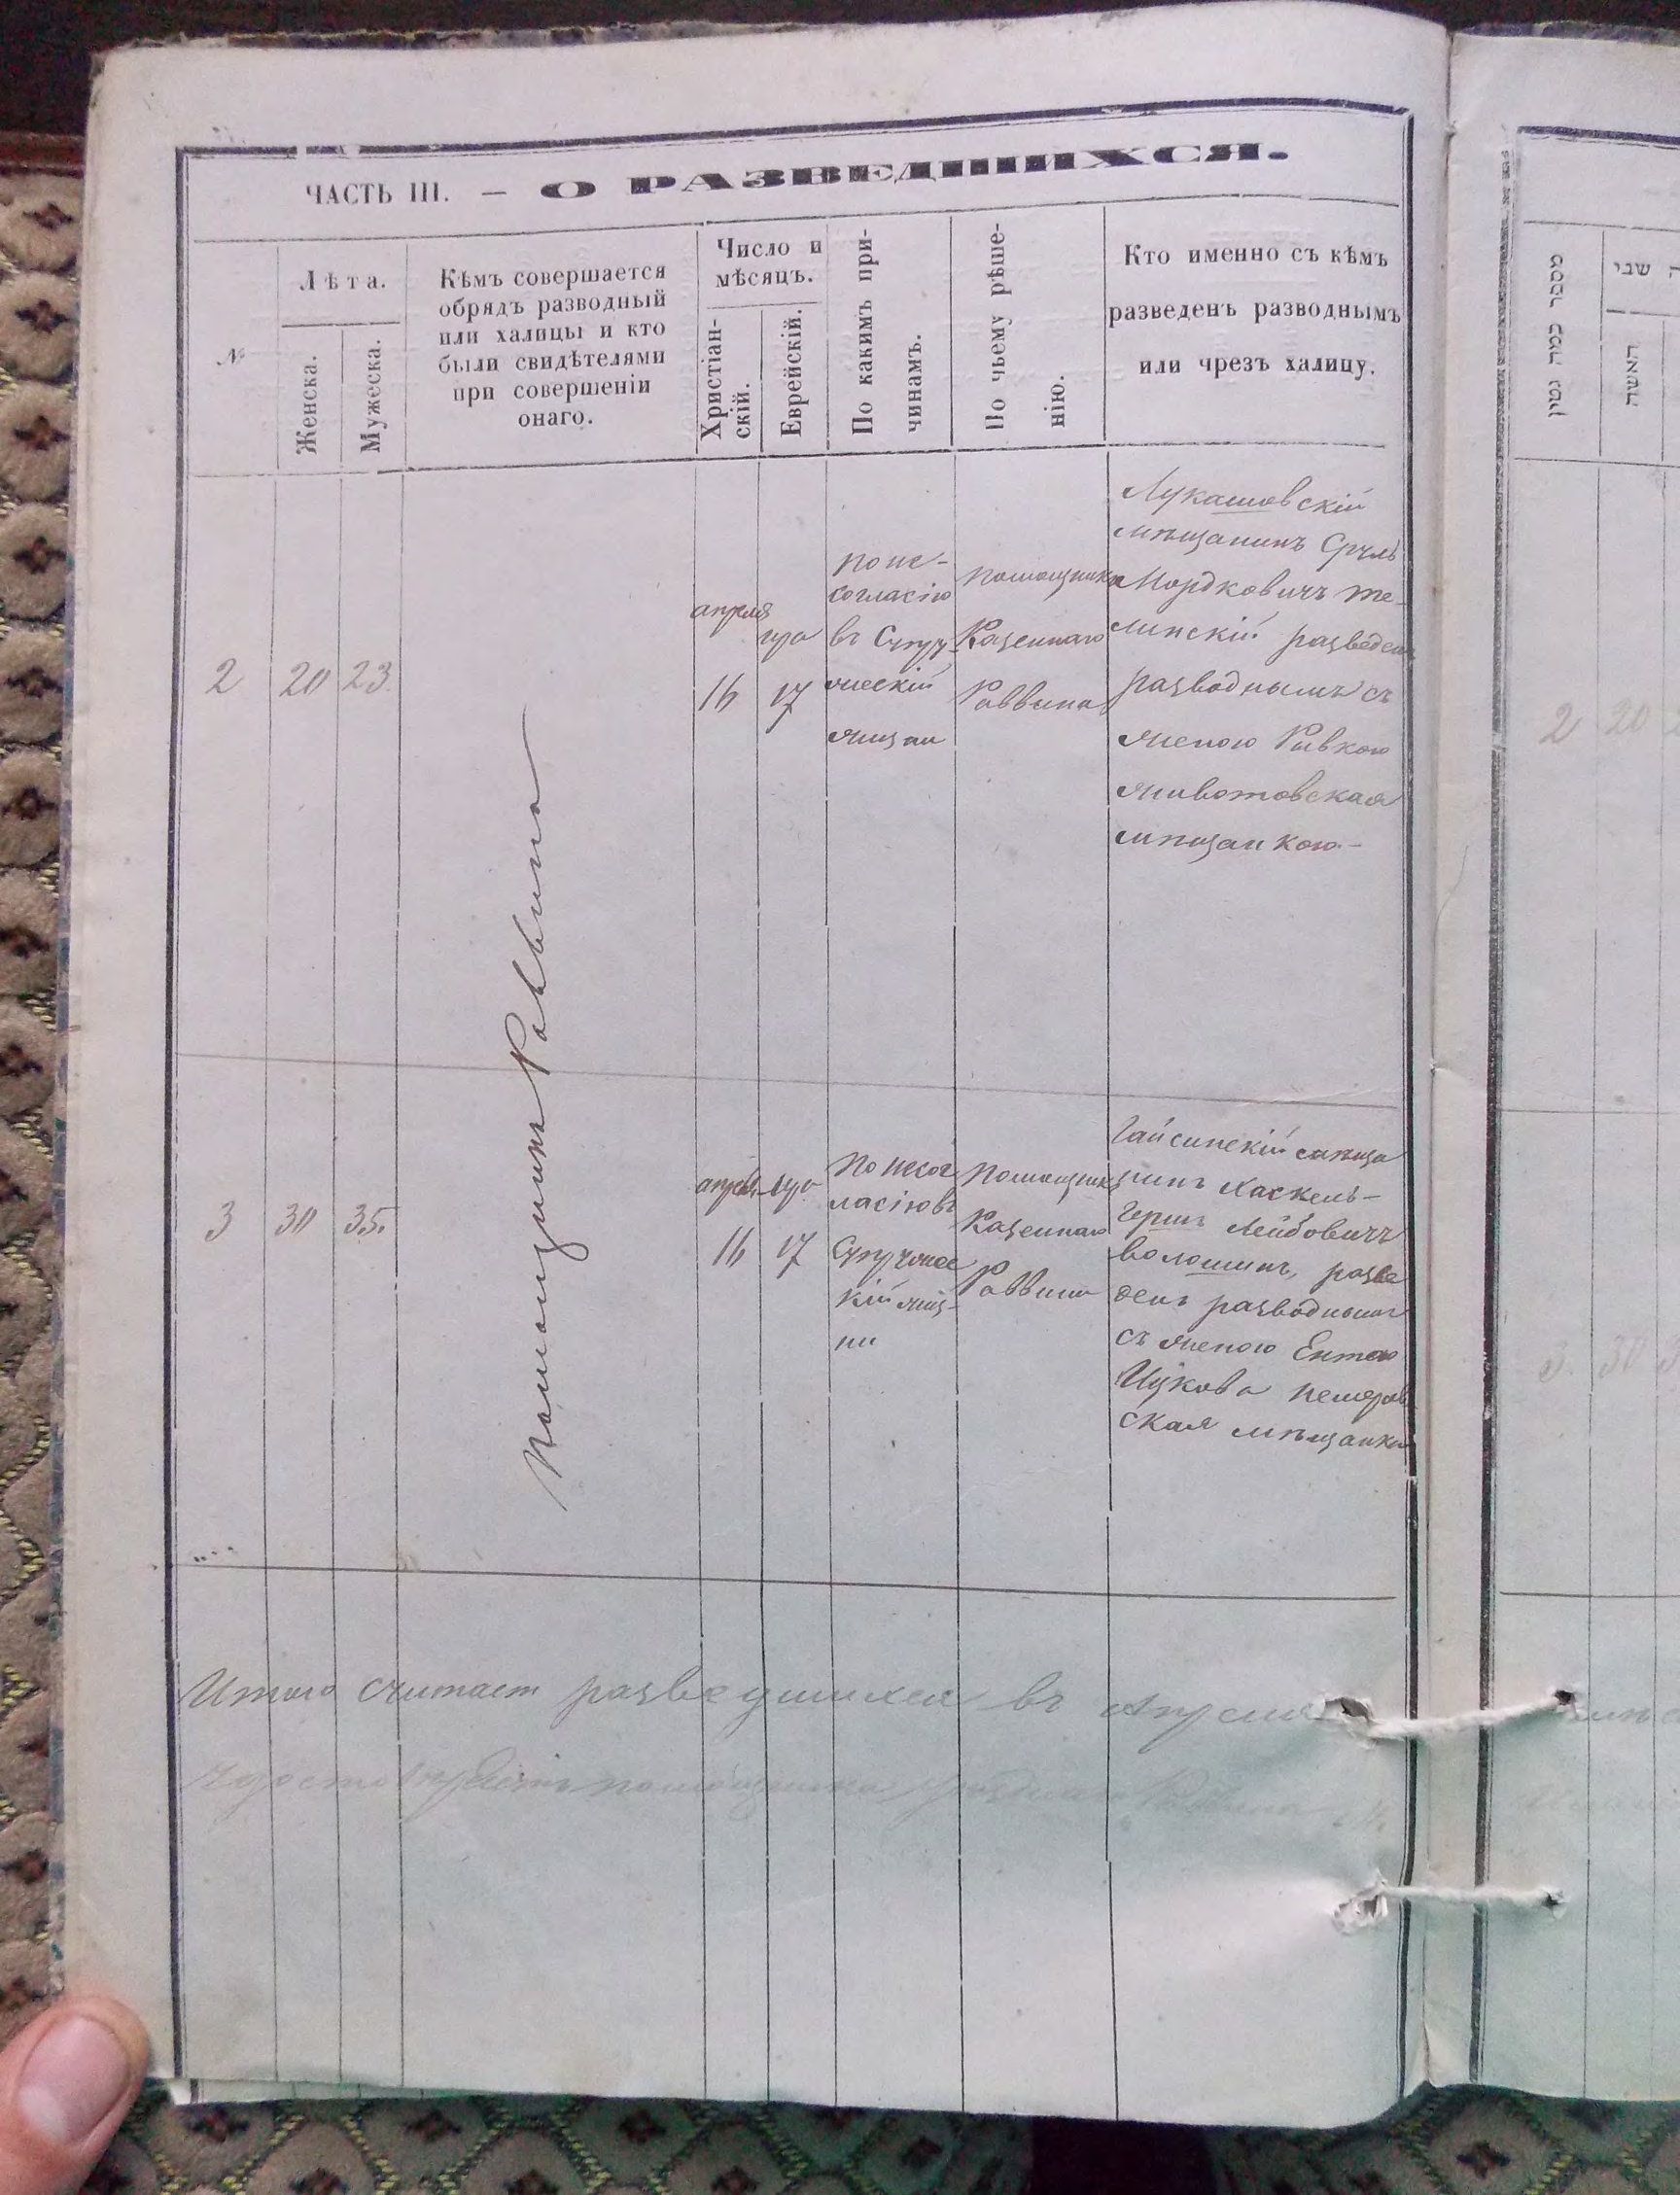 ЧАСТЬ III. — О РАЗВЕДШИХСЯ.
№
Лѣта.
Женска.
Мужеска.
Кѣмъ совершается
обрядъ разводный
или халицы и кто
были свидѣтелями
при совершеніи
онаго.
Число и
мѣсяцъ.
Христіан-
скій.
Еврейскій.
По какимъ при-
чинамъ.
По чьему рѣше-
нію.
Кто именно съ кѣмъ
разведенъ разводнымъ
или чрезъ халицу.
2
20
23
апреля
16
17
по не-
согласію
въ Супру
жескій
жизни
помощника
Казеннаго
Раввина
Лукашовскій
мѣщанинъ Сруль
Мордковичъ Те-
линскій разведен
разводнымъ съ
женою Ривкою
животовская
мѣщанкою-
Помощникъ Раввина
3
30
35.
16
17
По несог
ласію въ
Супружес
кій жиз-
ни
помощника
Казеннаго
Раввина
Гайсинскій мѣща
нинъ Хаскель-
Герш Лейбовичъ
волошинъ, разве
денъ разводнымъ
съ женою Ентою
Ицкова немиров
ская мѣщанка
Итого считает разведшихся въ Апреля
помощника Раввина
מספר כמה גטין
שני
האשה
2
20
3
30